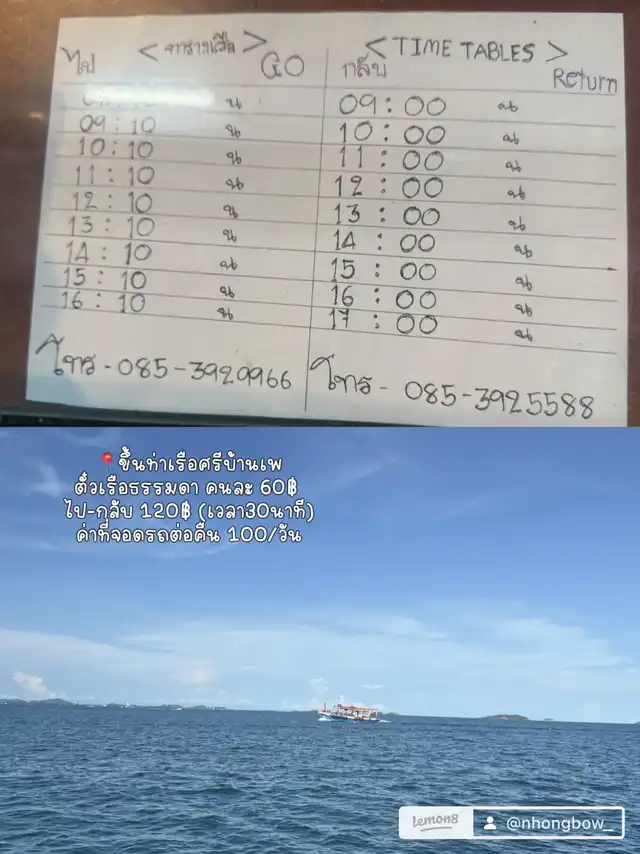 < ตารางเรือ >
ไป GO
09:10 น
10:10 น
11:10 น
12:10 น
13:10 น
14:10 น
15:10 น
16:10 น
โทร - 085-3929966
< TIME TABLES >
กลับ Return
09:00 น
10:00 น
11:00 น
12:00 น
13:00 น
14:00 น
15:00 น
16:00 น
17:00 น
โทร - 085-3925588
📍ขึ้นท่าเรือศรีบ้านเพ
ตั๋วเรือธรรมดา คนละ 60฿
ไป-กลับ 120฿ (เวลา30นาที)
ค่าที่จอดรถต่อคืน 100/วัน
lemon8 @nhongbow_